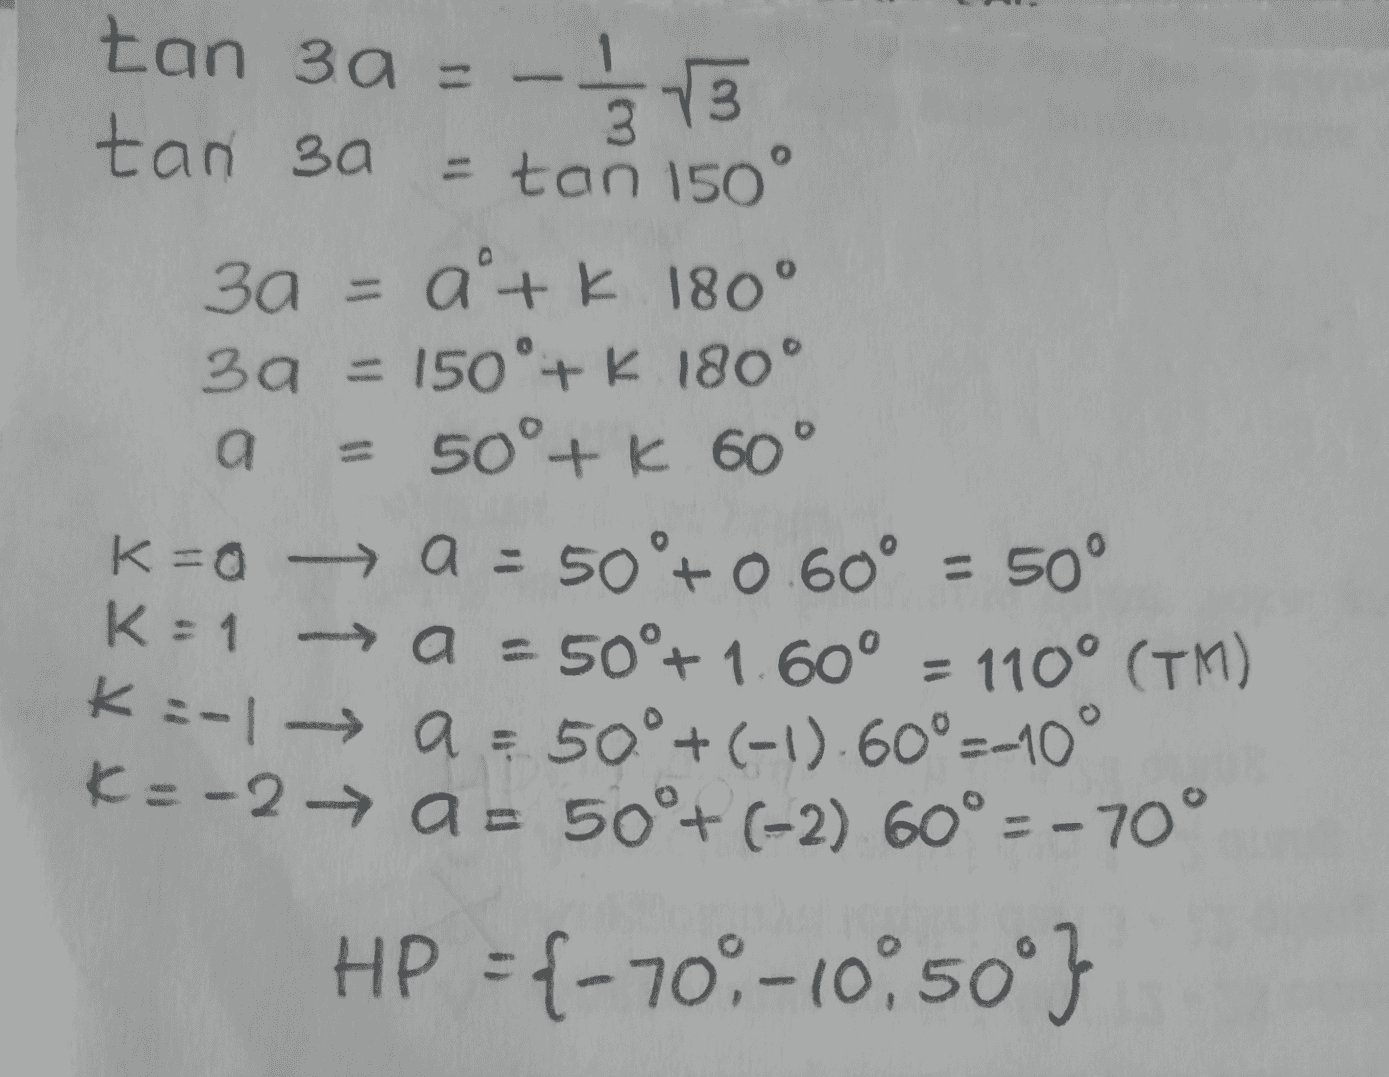 tan 3a = -1/3 √3
tan 3a = tan 150°
3a = a° + k 180°
3a = 150° + k 180°
a = 50° + k 60°
k = 0 → a = 50° + 0.60° = 50°
k = 1 → a = 50° + 1.60° = 110° (TM)
k = -1 → a = 50° + (-1).60° = -10°
k = -2 → a = 50° + (-2) 60° = -70°
HP = {-70°, -10°, 50°}